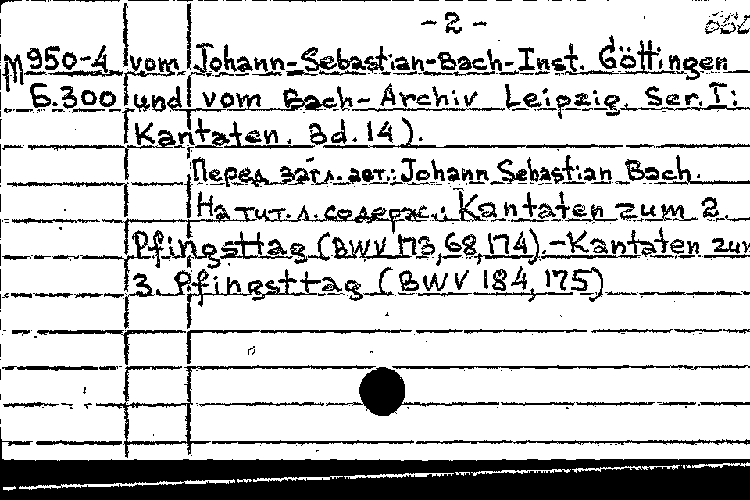 - 2 -
М950-4 vom Johann-Sebastian-Bach-Inst. Göttingen
Б.300 und vom Bach-Archiv Leipzig. Ser. I:
Kantaten. Bd. 14).
Перед загл. авт.: Johann Sebastian Bach.
На тит. л. содерж.: Kantaten zum 2.
Pfingsttag (BWV 173, 68, 174).-Kantaten zum
3. Pfingsttag (BWV 184, 175)